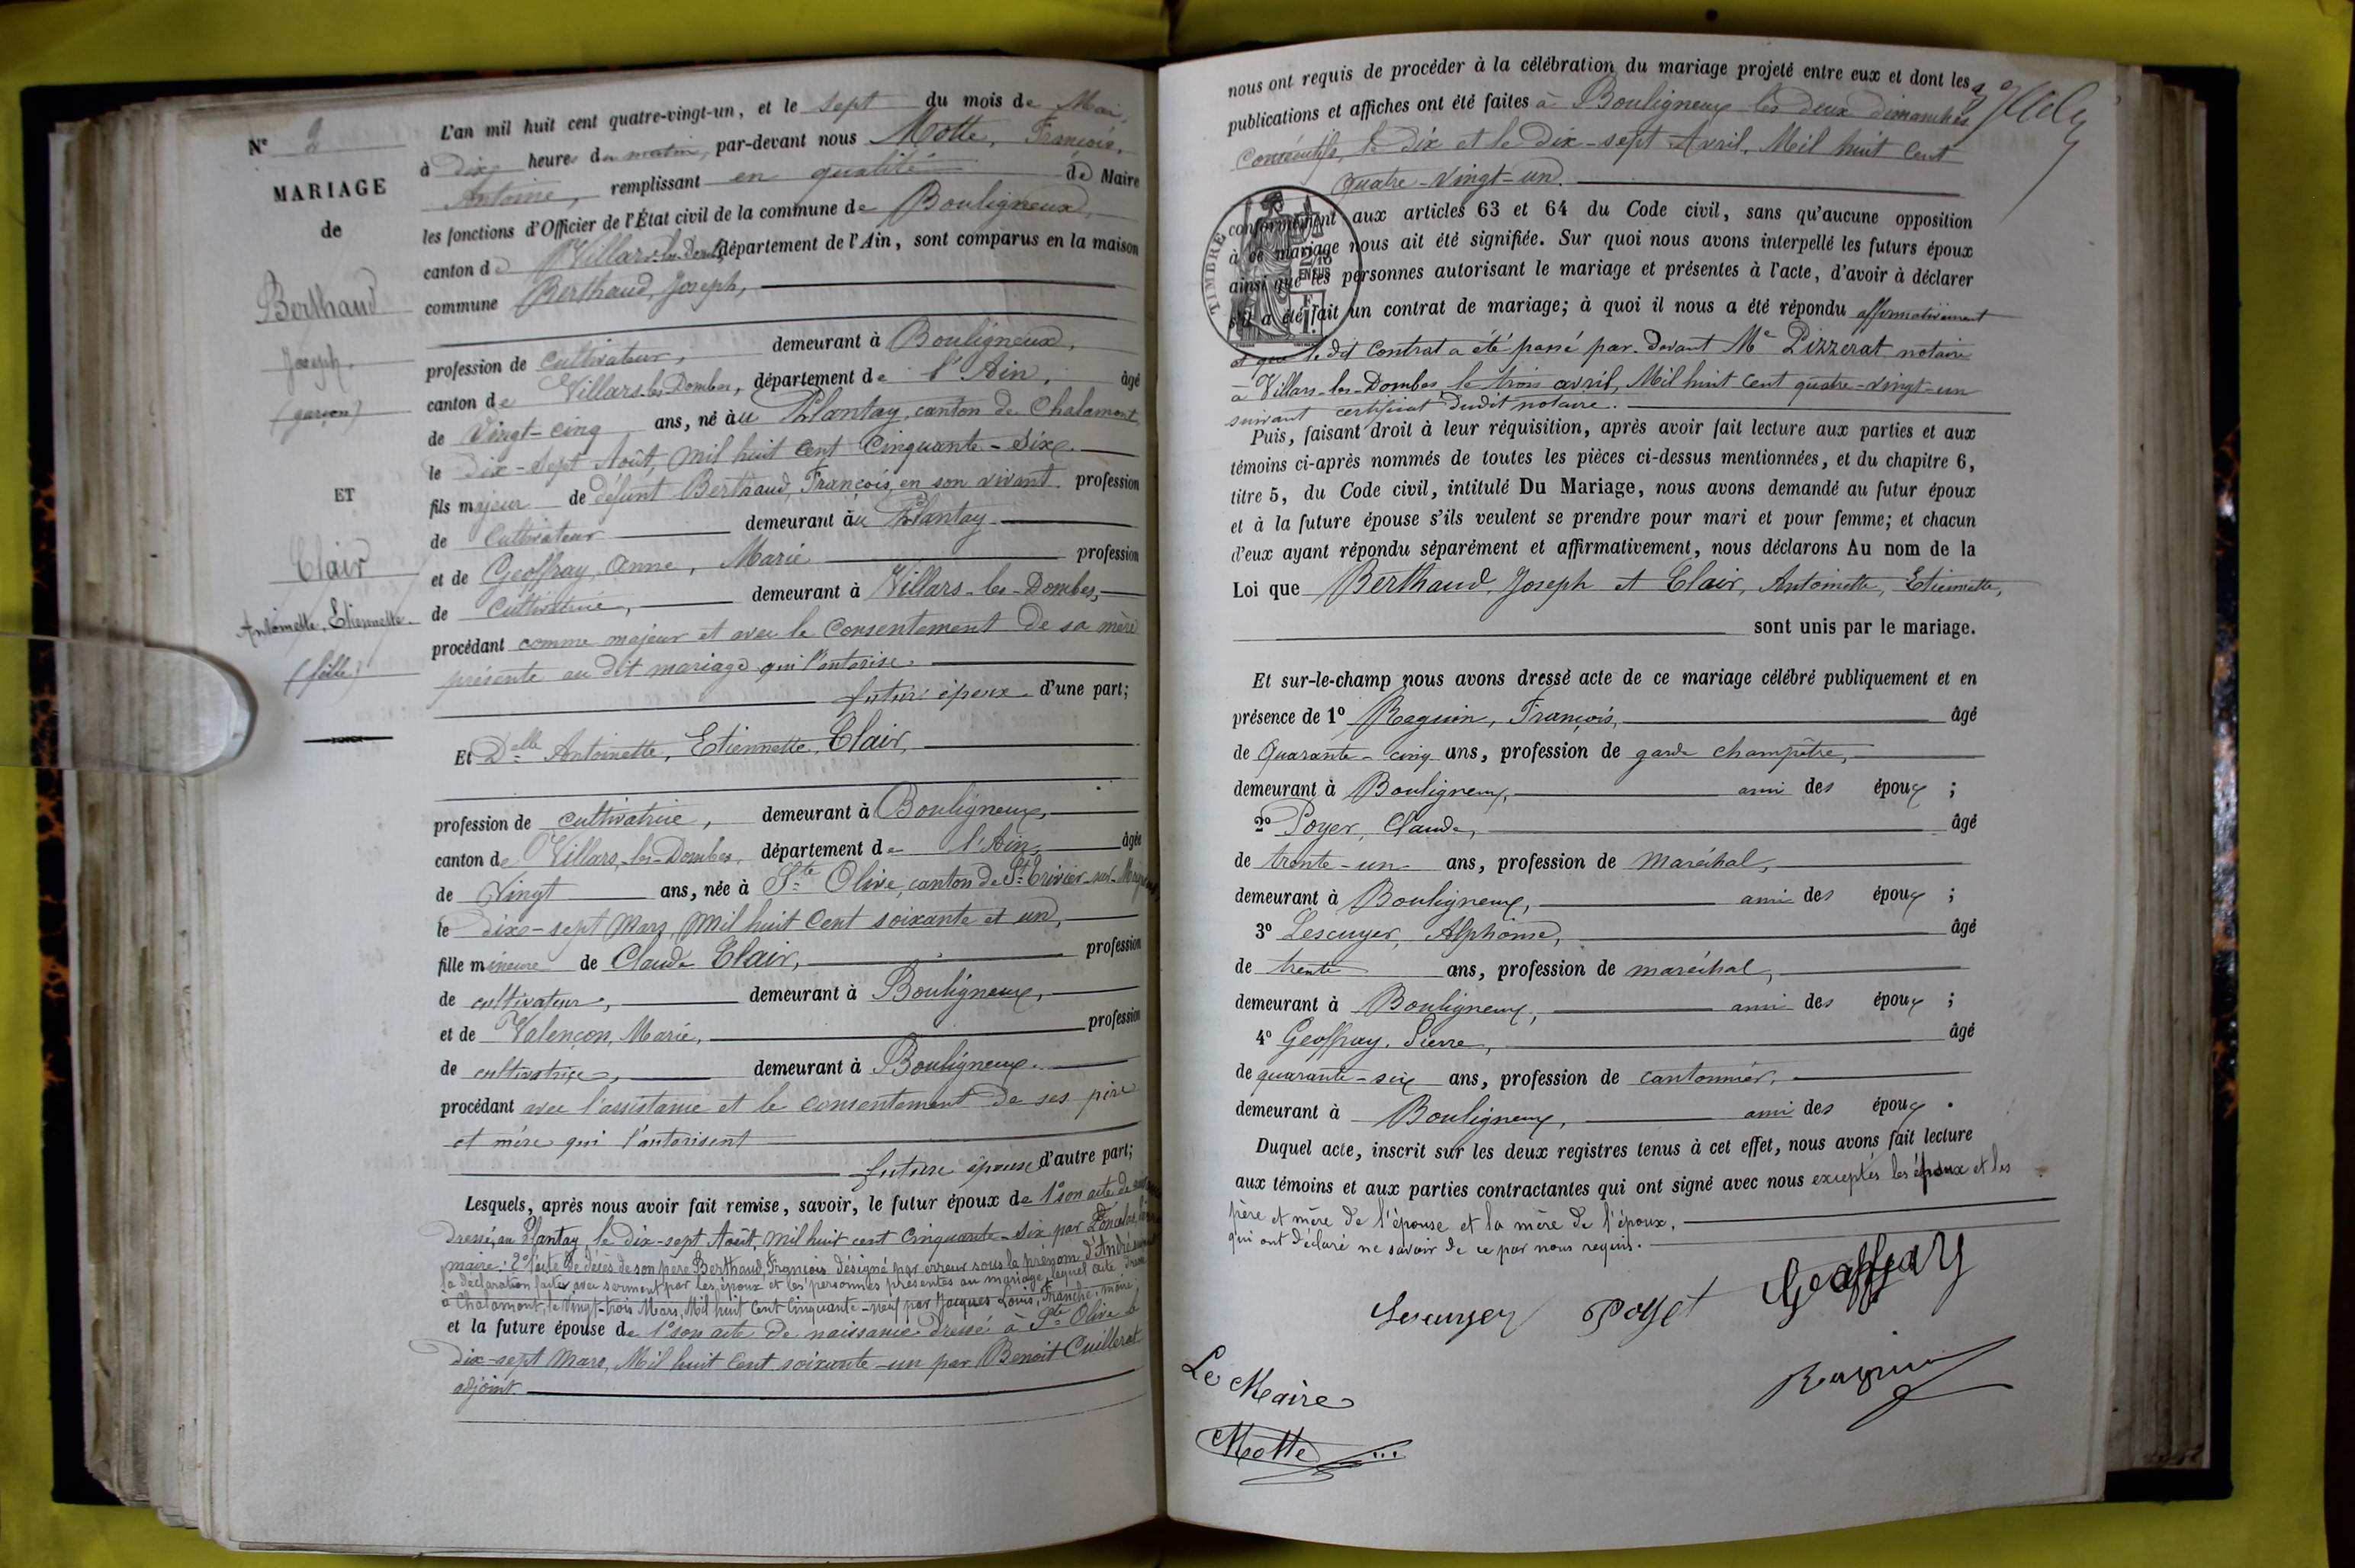 N° 2
MARIAGE
de
Berthaud
Joseph.
(garçon)
ET
Clair
Antoinette, Etiennette
(fille)
L'an mil huit cent quatre-vingt-un, et le sept du mois de Mai,
à dix heures du matin, par-devant nous Motte, François,
Antoine, remplissant en qualité de Maire
les fonctions d'Officier de l'État civil de la commune de Bouligneux,
canton de Villars-les-Dombes, département de l'Ain, sont comparus en la maison
commune Berthaud, Joseph,
profession de cultivateur, demeurant à Bouligneux,
canton de Villars-les-Dombes, département de l'Ain, âgé
de vingt-cinq ans, né au Plantay, canton de Chalamont,
le dix-sept Août, mil huit cent cinquante-six.
fils majeur de défunt Berthaud, François, en son vivant. profession
de Cultivateur demeurant au Plantay
et de Geoffray, Anne, Marie profession
de Cultivatrice, demeurant à Villars-les-Dombes,
procédant comme majeur et avec le consentement de sa mère
présente au dit mariage qui l'autorise.
futur époux d'une part;
Et Delle Antoinette, Etiennette, Clair,
profession de cultivatrice, demeurant à Bouligneux,
canton de Villars-les-Dombes, département de l'Ain, âgée
de Vingt ans, née à Ste Olive, canton de St Trivier-sur-
le dix-sept Mars, mil huit cent soixante et un,
fille mineure de Claude Clair, profession
de cultivateur, demeurant à Bouligneux,
et de Valençon, Marie, profession
de cultivatrice, demeurant à Bouligneux.
procédant avec l'assistance et le consentement de ses père
et mère qui l'autorisent
future épouse d'autre part;
Lesquels, après nous avoir fait remise, savoir, le futur époux de 1° son acte de
dressé, au Plantay, le dix-sept Août, mil huit cent cinquante-six par
maire: 2° l'acte de décès de son père Berthaud, François désigné par erreur sous le prénom d'André
la déclaration faite avec serment par les époux et les personnes présentes au mariage, lequel acte dressé
à Chalamont, le vingt-trois Mars, Mil huit cent cinquante-neuf par Jacques Louis, Franche, maire
et la future épouse de 1° son acte de naissance dressé à Ste Olive le
dix-sept Mars, Mil huit cent soixante-un par Benoit Cuillerat
adjoint
nous ont requis de procéder à la célébration du mariage projeté entre eux et dont les
publications et affiches ont été faites à Bouligneux les deux dimanches
consécutifs, le dix et le dix-sept Avril, Mil huit cent
quatre-vingt-un.
TIMBRE
conformément aux articles 63 et 64 du Code civil, sans qu'aucune opposition
à ce mariage nous ait été signifiée. Sur quoi nous avons interpellé les futurs époux
ainsi que les personnes autorisant le mariage et présentes à l'acte, d'avoir à déclarer
s'il a été fait un contrat de mariage; à quoi il nous a été répondu affirmativement
et que le dit contrat a été passé par devant Me Pizzerat notaire
à Villars-les-Dombes le trois avril, Mil huit cent quatre-vingt-un
suivant certificat dudit notaire.
Puis, faisant droit à leur réquisition, après avoir fait lecture aux parties et aux
témoins ci-après nommés de toutes les pièces ci-dessus mentionnées, et du chapitre 6,
titre 5, du Code civil, intitulé Du Mariage, nous avons demandé au futur époux
et à la future épouse s'ils veulent se prendre pour mari et pour femme; et chacun
d'eux ayant répondu séparément et affirmativement, nous déclarons Au nom de la
Loi que Berthaud, Joseph et Clair, Antoinette, Etiennette,
sont unis par le mariage.
Et sur-le-champ nous avons dressé acte de ce mariage célébré publiquement et en
présence de 1° Raguin, François, âgé
de Quarante-cinq ans, profession de garde champêtre,
demeurant à Bouligneux, ami des époux ;
2° Poyet, Claude, âgé
de trente-un ans, profession de Maréchal,
demeurant à Bouligneux, ami des époux ;
3° Lescuyer, Alphonse, âgé
de trente ans, profession de maréchal,
demeurant à Bouligneux, ami des époux ;
4° Geoffray, Pierre, âgé
de quarante-six ans, profession de cantonnier,
demeurant à Bouligneux, ami des époux .
Duquel acte, inscrit sur les deux registres tenus à cet effet, nous avons fait lecture
aux témoins et aux parties contractantes qui ont signé avec nous exceptés les époux et les
père et mère de l'épouse et la mère de l'époux,
qui ont déclaré ne savoir de ce par nous requis.
Lescuyer Poyet Geoffray
Raguin
Le Maire
Motte